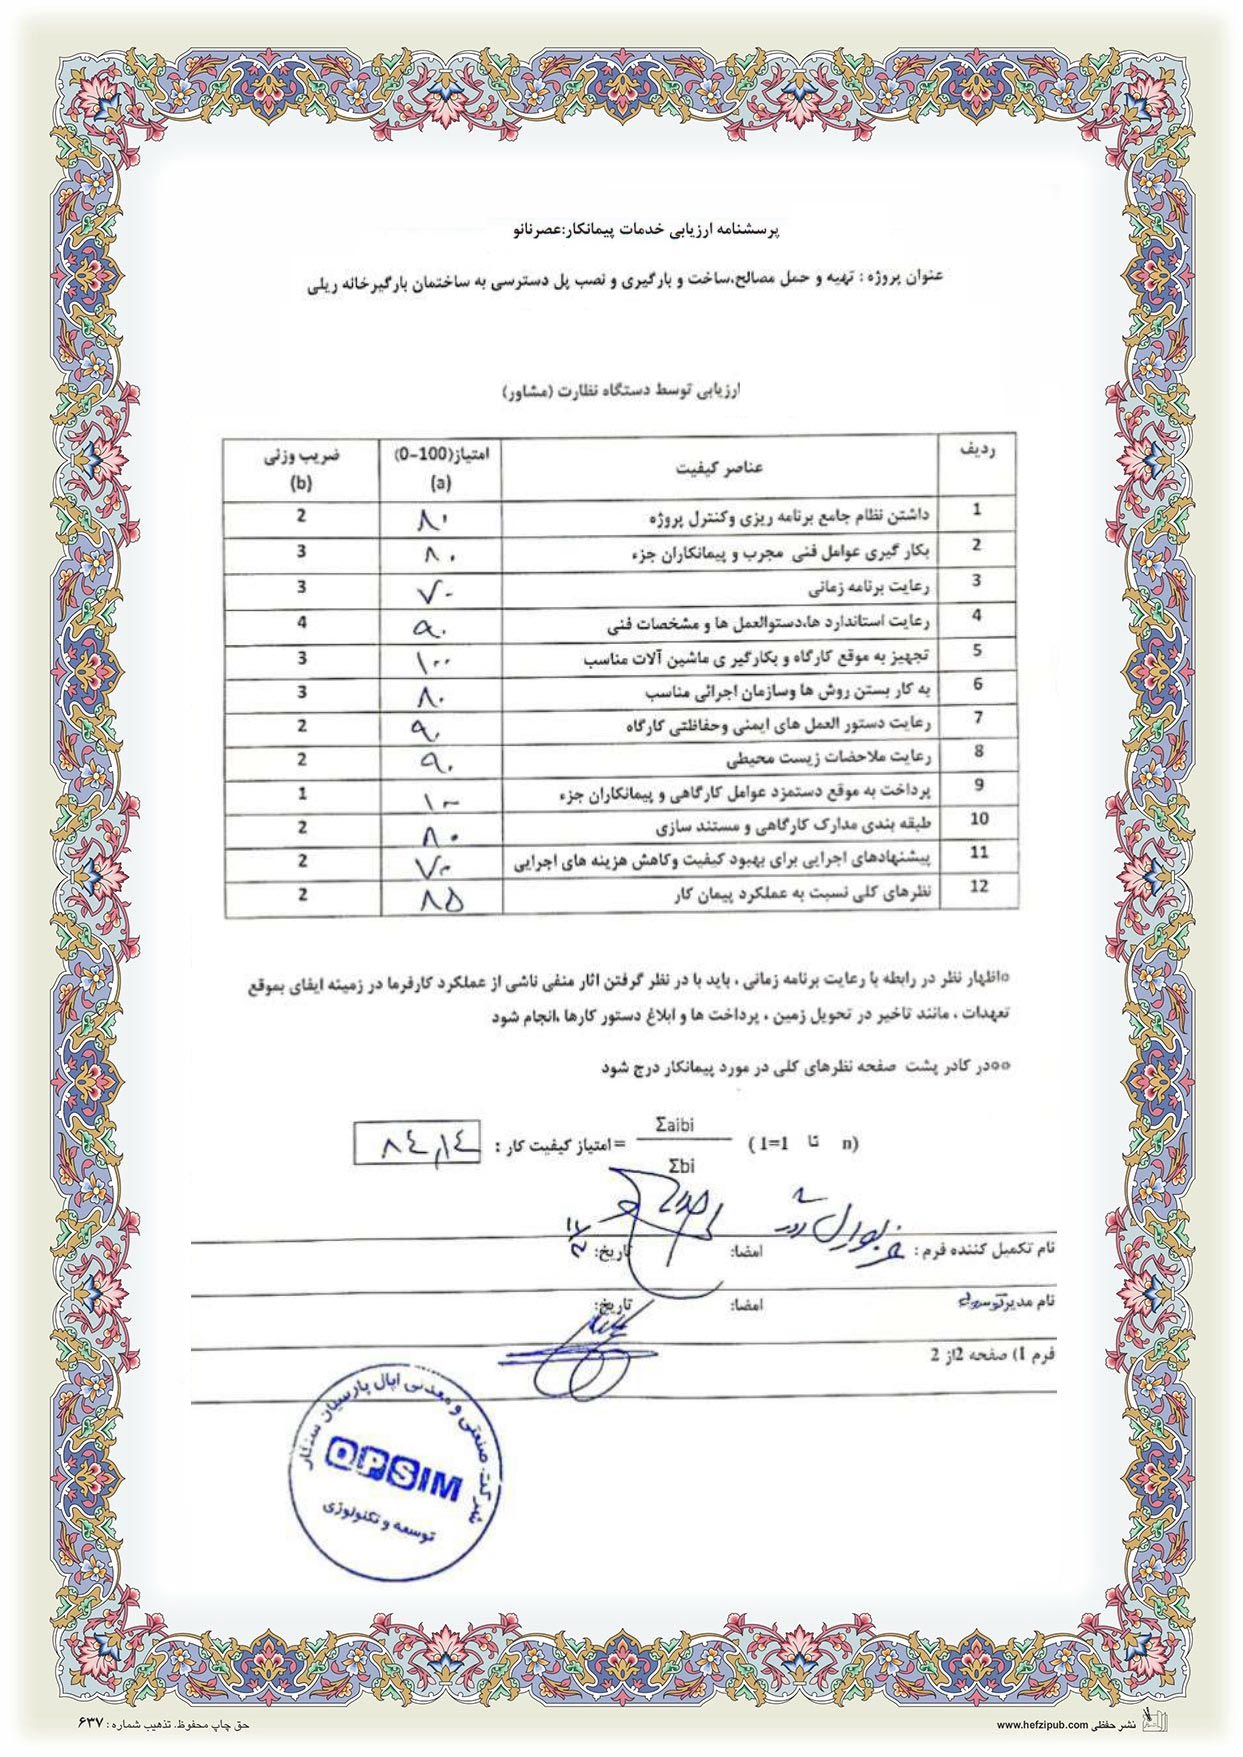 پرسشنامه ارزیابی خدمات پیمانکار:عصرنانو
عنوان پروژه : تهیه و حمل مصالح،ساخت و بارگیری و نصب پل دسترسی به ساختمان بارگیرخانه ریلی
ارزیابی توسط دستگاه نظارت (مشاور)
ردیف عناصر کیفیت امتیاز(100-0) (a) ضریب وزنی (b)
1 داشتن نظام جامع برنامه ریزی وکنترل پروژه ۸۰ 2
2 بکار گیری عوامل فنی مجرب و پیمانکاران جزء ۸۰ 3
3 رعایت برنامه زمانی ۷۰ 3
4 رعایت استاندارد ها،دستوالعمل ها و مشخصات فنی ۹۰ 4
5 تجهیز به موقع کارگاه و بکارگیر ی ماشین آلات مناسب ۱۰۰ 3
6 به کار بستن روش ها وسازمان اجرائی مناسب ۸۰ 3
7 رعایت دستور العمل های ایمنی وحفاظتی کارگاه ۹۰ 2
8 رعایت ملاحضات زیست محیطی ۹۰ 2
9 پرداخت به موقع دستمزد عوامل کارگاهی و پیمانکاران جزء ۱۰۰ 1
10 طبقه بندی مدارک کارگاهی و مستند سازی ۸۰ 2
11 پیشنهادهای اجرایی برای بهبود کیفیت وکاهش هزینه های اجرایی ۷۰ 2
12 نظرهای کلی نسبت به عملکرد پیمان کار ۸۵ 2
٥اظهار نظر در رابطه با رعایت برنامه زمانی ، باید با در نظر گرفتن اثار منفی ناشی از عملکرد کارفرما در زمینه ایفای بموقع
تعهدات ، مانند تاخیر در تحویل زمین ، پرداخت ها و ابلاغ دستور کارها ،انجام شود
٥٥در کادر پشت صفحه نظرهای کلی در مورد پیمانکار درج شود
(n تا 1=1) Σaibi
Σbi =امتیاز کیفیت کار : ۸٤,۱٤
نام تکمیل کننده فرم : امضا: تاریخ:
نام مدیر توسعه امضا: تاریخ:
فرم 1) صفحه 2از 2
شرکت صنعتی و معدنی اپال پارسیان سنگان
OPSIM
توسعه و تکنولوژی
نشر حفظی www.hefzipub.com
حق چاپ محفوظ. تذهیب شماره : ۶۳۷